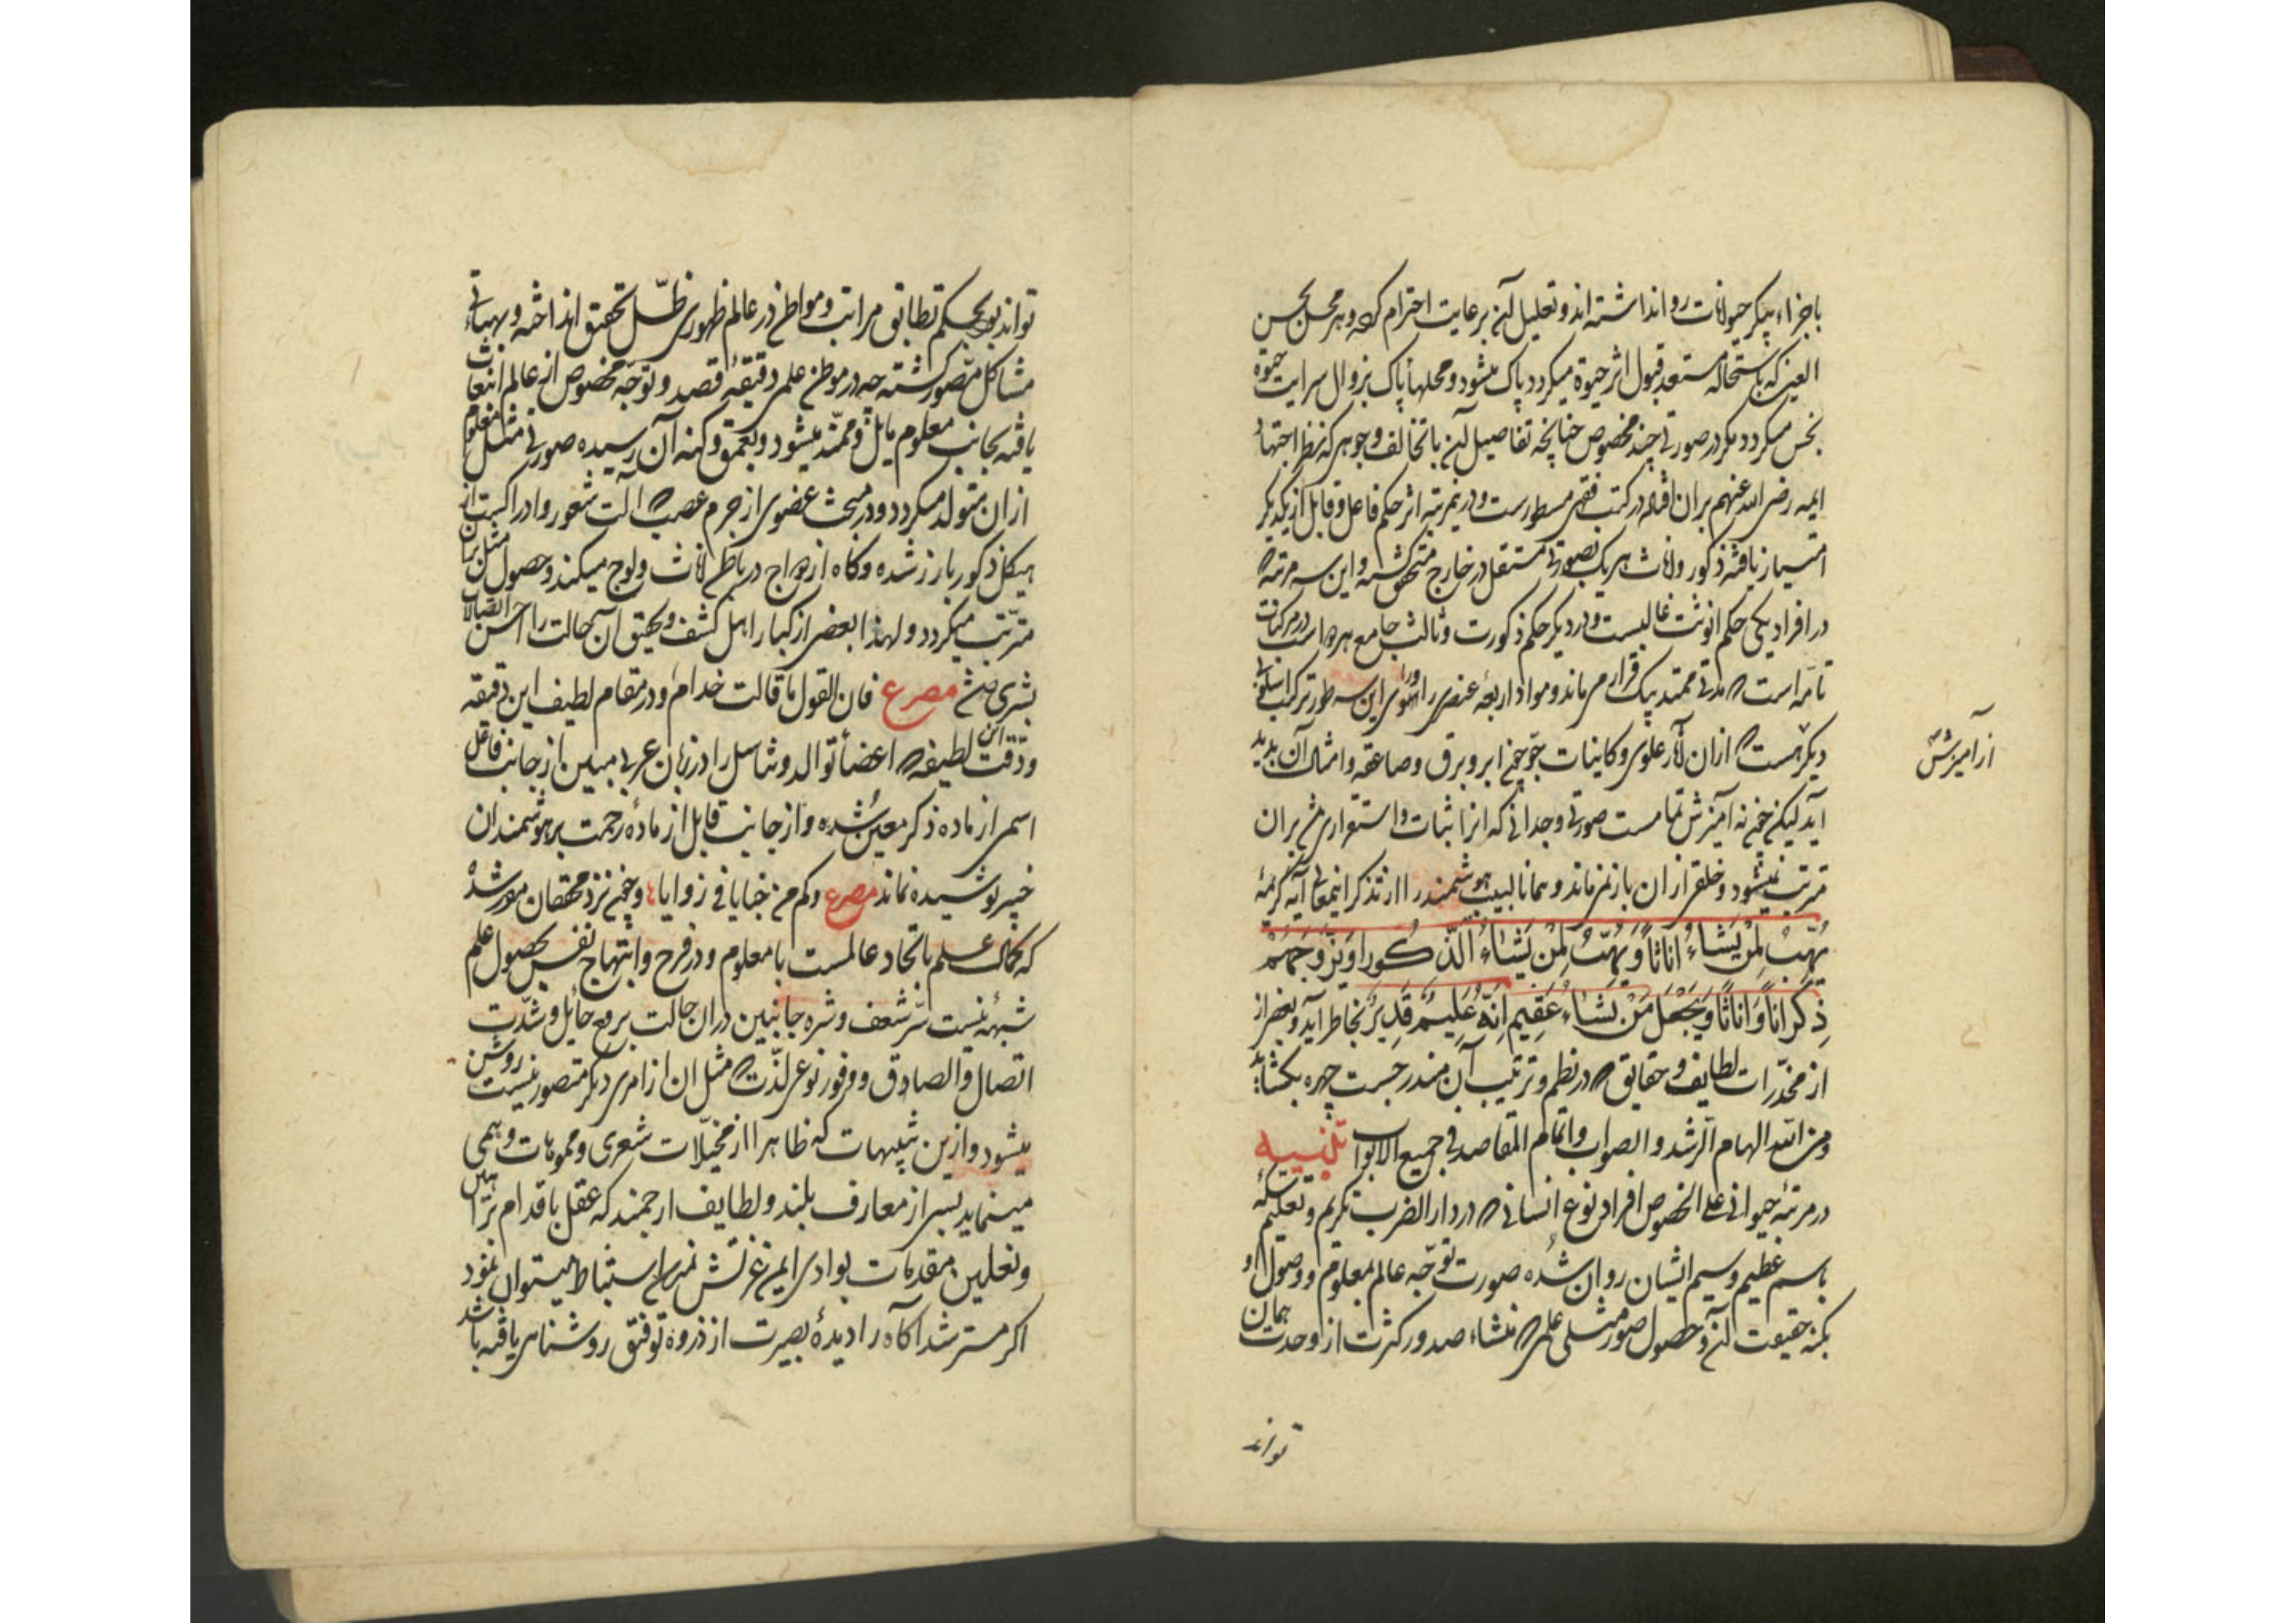 باجزاء پیکر حیوانات روا نداشته اند و تعلیل آن برعایت احترام کرده و هر محل نجس
العین که باستحاله مستعد قبول اثر حیوة میکردد پاک میشود و محلهأ پاک بزوال سرایت حیوة
نجس میکردد مکر در صورتی چند مخصوص چنانچه تفاصیل آن با تخالف وجوهی که نظر اجتهاد
ایمه رضی الله عنهم بران افتاده در کتب فقهی مسطورست و درین مرتبه اثر حکم فاعل و قابل از یکدیکر
امتیاز یافته ذکور و اناث هر یک بصورتی مستقل در خارج متحقق کشته و این سه مرتبه که
در افراد یکی حکم انوثت غالبست و در دیکر حکم ذکورت و ثالث جامع هر دو است در مرکبات
تامّه است که مدتی ممتد بیک قرار می ماند و مواد اربعه عنصری را ورای این سه طور ترکیب اسلوبی
دیکر هست که ازان آثار علوی و کاینات جوّ چون ابر و برق و صاعقه و امثال آن پدید
از آمیزش
آید لیکن چون نه آمیزش تمامست صورتی وجدانی که انرا ثبات و استقراری بود بران
مترتب نمیشود و خلقی ازان باز نمی ماند و همانا لبیب هوشمند را از تذکر اینمعانی آیه کریمه
یَهَبُ لِمَنْ یَشَاءُ اِنَاثًا وَیَهَبُ لِمَنْ یَشَاءُ الذُّکُورَ اَوْ یُزَوِّجُهُمْ
ذُکْرَانًا وَاِنَاثًا وَیَجْعَلُ مَنْ یَشَاءُ عَقِیمًا اِنَّهُ عَلِیمٌ قَدِیرٌ بخاطر آید و بعضی از
از مخدّرات لطایف و حقایق که در نظم و ترتیب آن مندرجست چهره بکشاید
ومن الله الهام الرشد والصواب واتمام المقاصد فی جمیع الابواب تنبیه
در مرتبهٔ حیوانی علی الخصوص افراد نوع انسانی که در دار الضرب تکریم و تعلیم سکه
باسم عظیم و سیم ایشان روان شُده صورت توجّه عالم بمعلوم و وصول او
بکنه حقیقت آن و حصول صور مثلی علمی که منشاء صدور کثرت از وحدت همان
تواند
تواند بود بحکم تطابق مراتب و مواطن در عالم ظهور ظلّ تحقق انداخته و بهیأتی
مشاکل متصور کشته چه در موطن علمی دقیقهٔ قصد و توجّه مخصوص از عالم انبعاث
یافته بجانب معلوم مایل و ممتد میشود و بعمق و کنه آن رسیده صورتی مثل معلوم
ازان متولد میکردد و در مبحث عضوی از جرم عصب که آلت شعور و ادراکست از
هیکل ذکور بارز شده و کاه ازدواج در باطن اناث ولوج میکند و حصول مثل بران
مترتب میکردد و لهذا بعضی از کبار اهل کشف و تحقیق آن حالت را احسن اتصالات
بشری مصرع فان القول ما قالت خدام و درمقام لطیف این دقیقه
و دقت این لطیفه که اعضأ توالد و تناسل را در زبان عربی مبین از جانب فاعل
اسمی از ماده ذکر معین شده و از جانب قابل از مادهٔ رحمت بر هوشمندان
خبیر پوشیده نماند مصرع وکم من خبایا فی زوایا و چون نزد محققان مقرر شده
که کمال علم باتحاد عالمست با معلوم و در فرح و ابتهاج نفس بحصول علم
شبههٔ نیست سّر شعف و شره جانبین دران حالت برفع حائل و شدّت
اتصال و الصادق و وفور نوعی لذّت که مثل ان از امری دیکر متصور نیست روشن
میشود و ازین تنبیهات که ظاهرا از مخیّلات شعری و مموهات وهمی
مینماید بسی از معارف بلند و لطایف ارجمند که عقل باقدام براهین
و نعلین مقدمات بوادی ایمن استنباط نمیتوان نمود
اکر مسترشد آکاه را دیدهٔ بصیرت از ذروه توفیق روشنایی یافته باشد